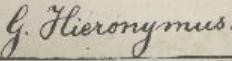 G. Hieronymus.